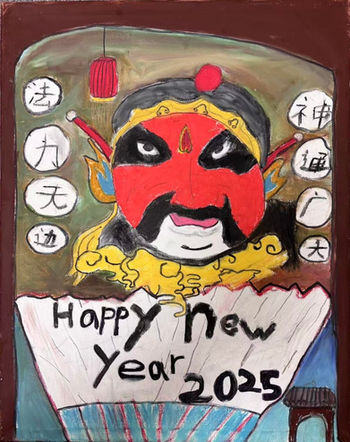 法力无边
神通广大
Happy new
year
2025